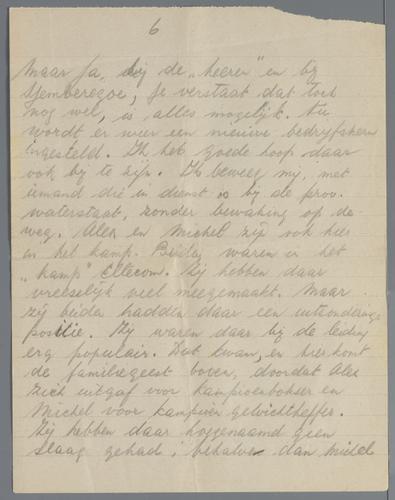 6
Maar ja, bij de „heeren" en bij
Jemberegoe, je verstaat dat toch
nog wel, is alles mogelijk. Nu
wordt er weer een nieuwe bedryfskern
ingesteld. Ik heb goede hoop daar
ook bij te zijn. Ik beweeg mij, met
iemand die in dienst is bij de prov.
waterstaat, zonder bewaking op de
weg. Alex en Michel zijn ook hier
in het kamp. Beide waren in het
„kamp" Ellecom. Zij hebben daar
vreeselijk veel meegemaakt. Maar
zij beiden hadden daar een uitzonderings
positie. Zij waren daar bij de leiding
erg populair. Dat kwam, en hier komt
de familiegeest boven, doordat Alex
zich uitgaf voor kampioenbokser en
Michel voor kampioen gewichtheffer.
Zij hebben daar hoegenaamd geen
slaag gehad, behalve dan Michel